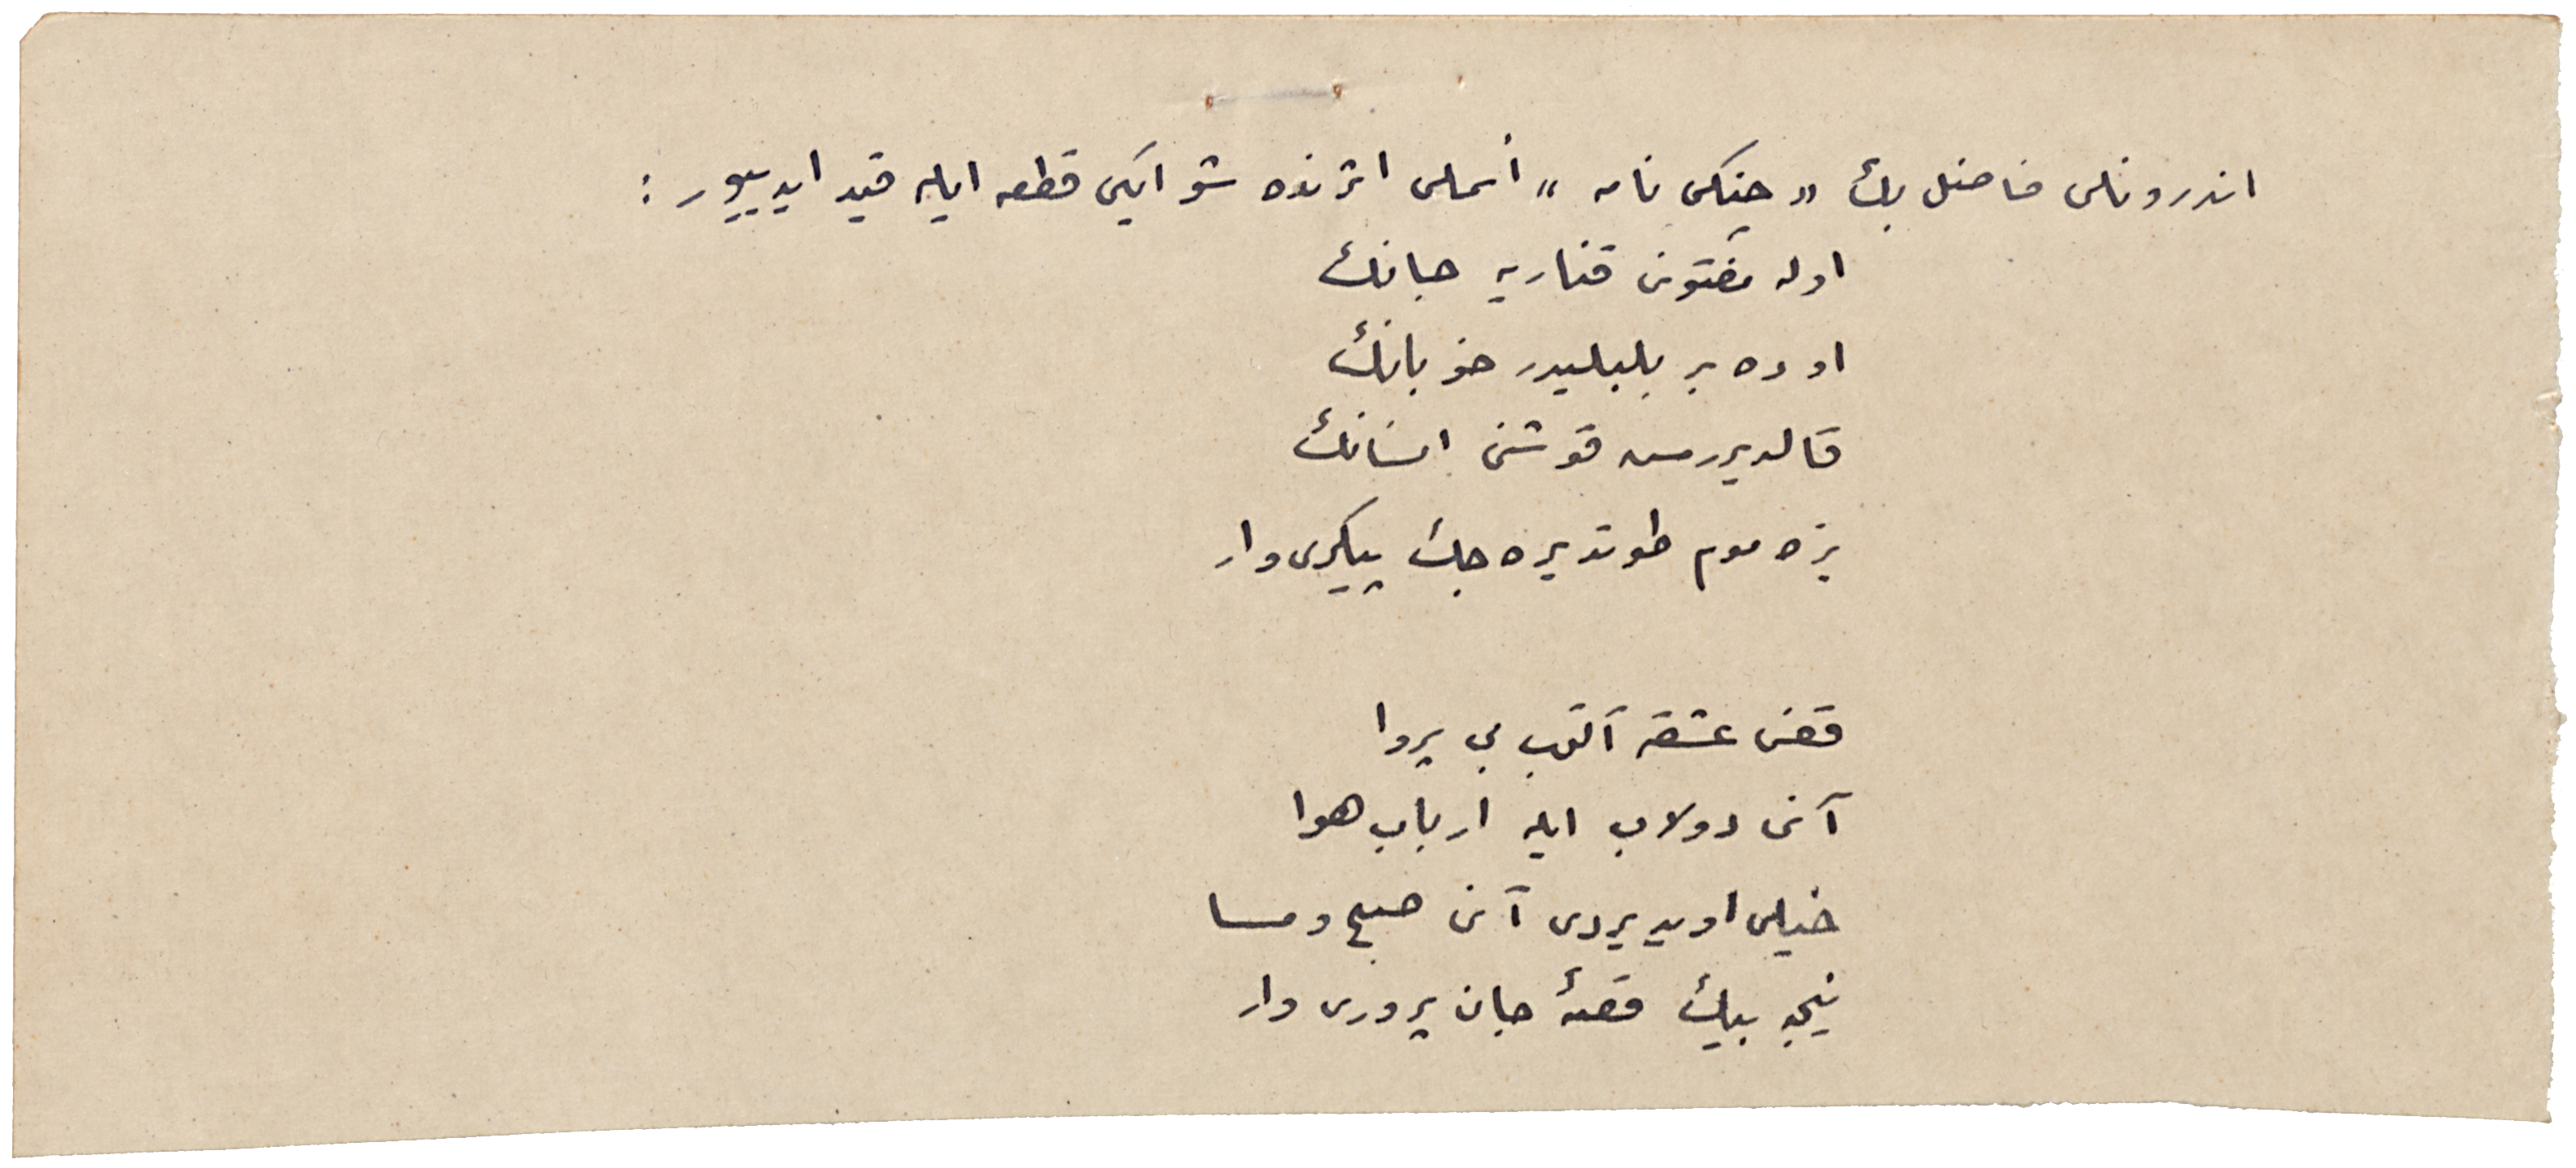 اندرونلی فاضل بك «چنکی نامه» أسملی اثرنده شو ایکی قطعه ایله قید ایدییور :
اوله مفتون قناریه جانك
او ده بر بلبلیدر خوبانك
قالدیررسه قوشنی انسانك
بزه موم طوتدیره جك پیکری وار
قفس عشقه آلوب بی پروا
آنی دولاب ایله ارباب هوا
خیلی اویدیردی آنی صبح و مسا
نیجه بیك قصهٔ جان پروری وار